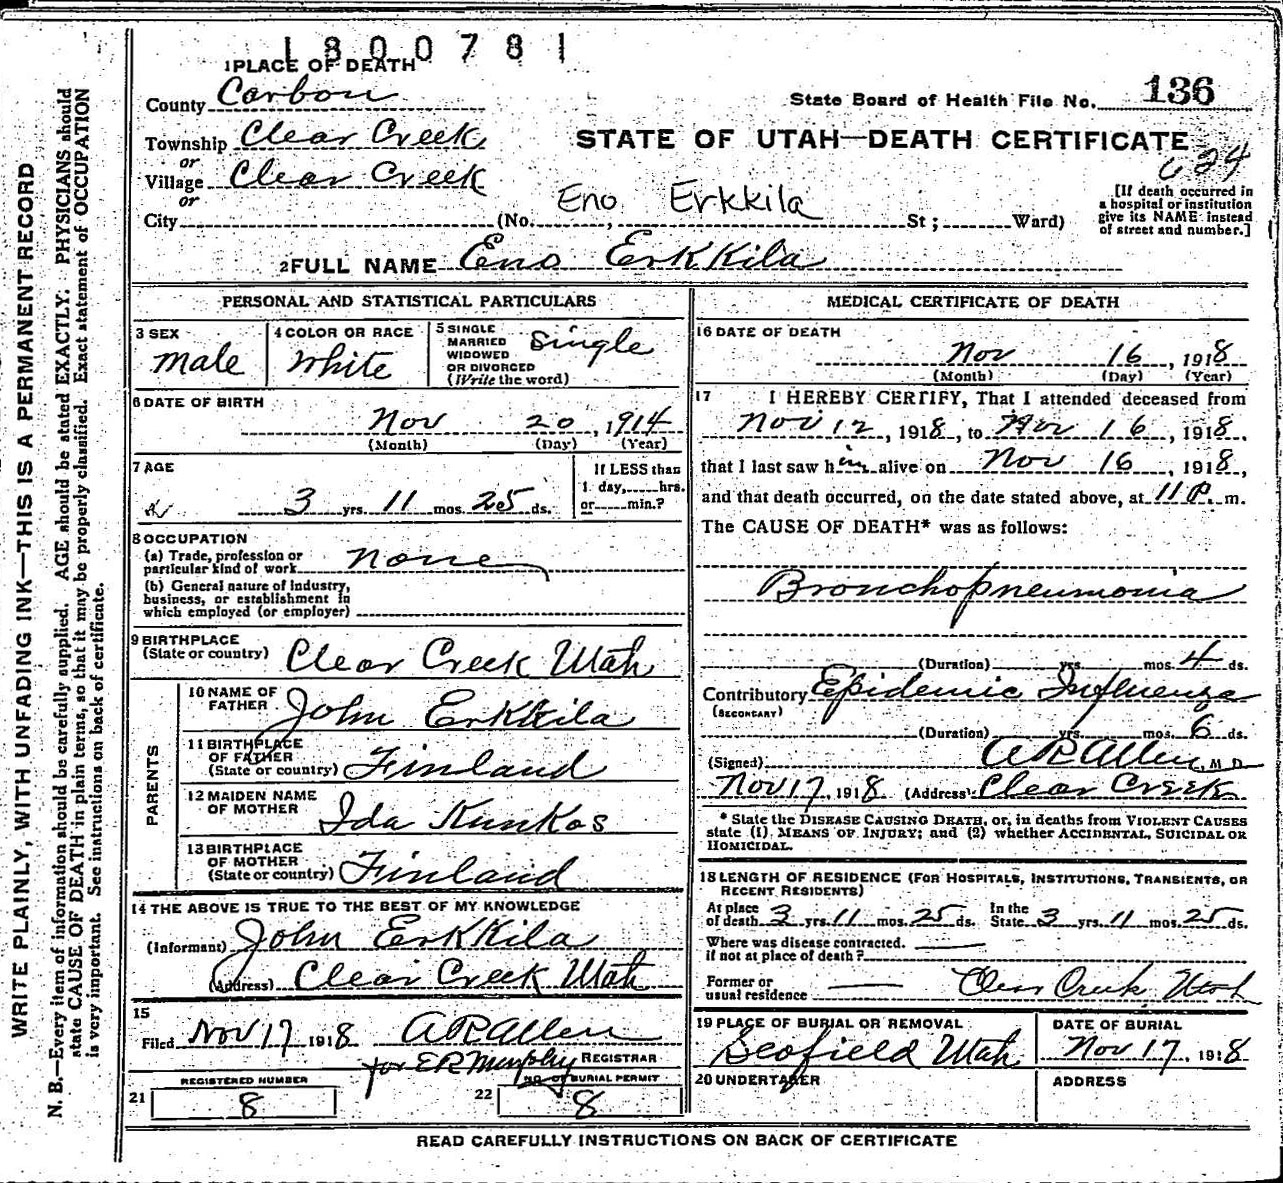 1800781
1 PLACE OF DEATH
County Carbon
State Board of Health File No. 136
Township Clear Creek
STATE OF UTAH—DEATH CERTIFICATE
or
624
Village Clear Creek
or
[If death occurred in
a hospital or institution
give its NAME instead
of street and number.]
Eno Erkkila
City (No. , St; Ward)
2 FULL NAME Eno Erkkila
PERSONAL AND STATISTICAL PARTICULARS
3 SEX
male
4 COLOR OR RACE
White
5 SINGLE
MARRIED
WIDOWED
OR DIVORCED
(Write the word)
Single
6 DATE OF BIRTH
Nov 20, 1914
(Month) (Day) (Year)
7 AGE
3 yrs. 11 mos. 25 ds.
If LESS than
1 day, hrs.
or min.?
8 OCCUPATION
(a) Trade, profession or
particular kind of work none
(b) General nature of industry,
business, or establishment in
which employed (or employer)
9 BIRTHPLACE
(State or country) Clear Creek Utah
PARENTS
10 NAME OF
FATHER John Erkkila
11 BIRTHPLACE
OF FATHER
(State or country) Finland
12 MAIDEN NAME
OF MOTHER Ida Kunkos
13 BIRTHPLACE
OF MOTHER
(State or country) Finland
14 THE ABOVE IS TRUE TO THE BEST OF MY KNOWLEDGE
(Informant) John Erkkila
(Address) Clear Creek Utah
15
Filed Nov 17 1918 AR Allen
for E R Murphy REGISTRAR
REGISTERED NUMBER
21 8
NO. OF BURIAL PERMIT
22 8
MEDICAL CERTIFICATE OF DEATH
16 DATE OF DEATH
Nov 16, 1918
(Month) (Day) (Year)
17 I HEREBY CERTIFY, That I attended deceased from
Nov 12, 1918, to Nov 16, 1918,
that I last saw him alive on Nov 16, 1918,
and that death occurred, on the date stated above, at 11 P. m.
The CAUSE OF DEATH* was as follows:
Bronchopneumonia
(Duration) yrs. mos. 4 ds.
Contributory Epidemic Influenza
(SECONDARY)
(Duration) yrs. mos. 6 ds.
(Signed) AR Allen, M. D.
Nov 17, 1918 (Address) Clear Creek
* State the DISEASE CAUSING DEATH, or, in deaths from VIOLENT CAUSES
state (1), MEANS OF INJURY; and (2) whether ACCIDENTAL, SUICIDAL OR
HOMICIDAL.
18 LENGTH OF RESIDENCE (FOR HOSPITALS, INSTITUTIONS, TRANSIENTS, OR
RECENT RESIDENTS)
At place
of death 3 yrs. 11 mos. 25 ds.
In the
State 3 yrs. 11 mos. 25 ds.
Where was disease contracted.
if not at place of death?
Former or
usual residence Clear Creek, Utah
19 PLACE OF BURIAL OR REMOVAL
Scofield Utah
DATE OF BURIAL
Nov 17, 1918
20 UNDERTAKER
ADDRESS
READ CAREFULLY INSTRUCTIONS ON BACK OF CERTIFICATE
WRITE PLAINLY, WITH UNFADING INK—THIS IS A PERMANENT RECORD
N. B.—Every item of information should be carefully supplied. AGE should be stated EXACTLY. PHYSICIANS should
state CAUSE OF DEATH in plain terms, so that it may be properly classified. Exact statement of OCCUPATION
is very important. See instructions on back of certificate.